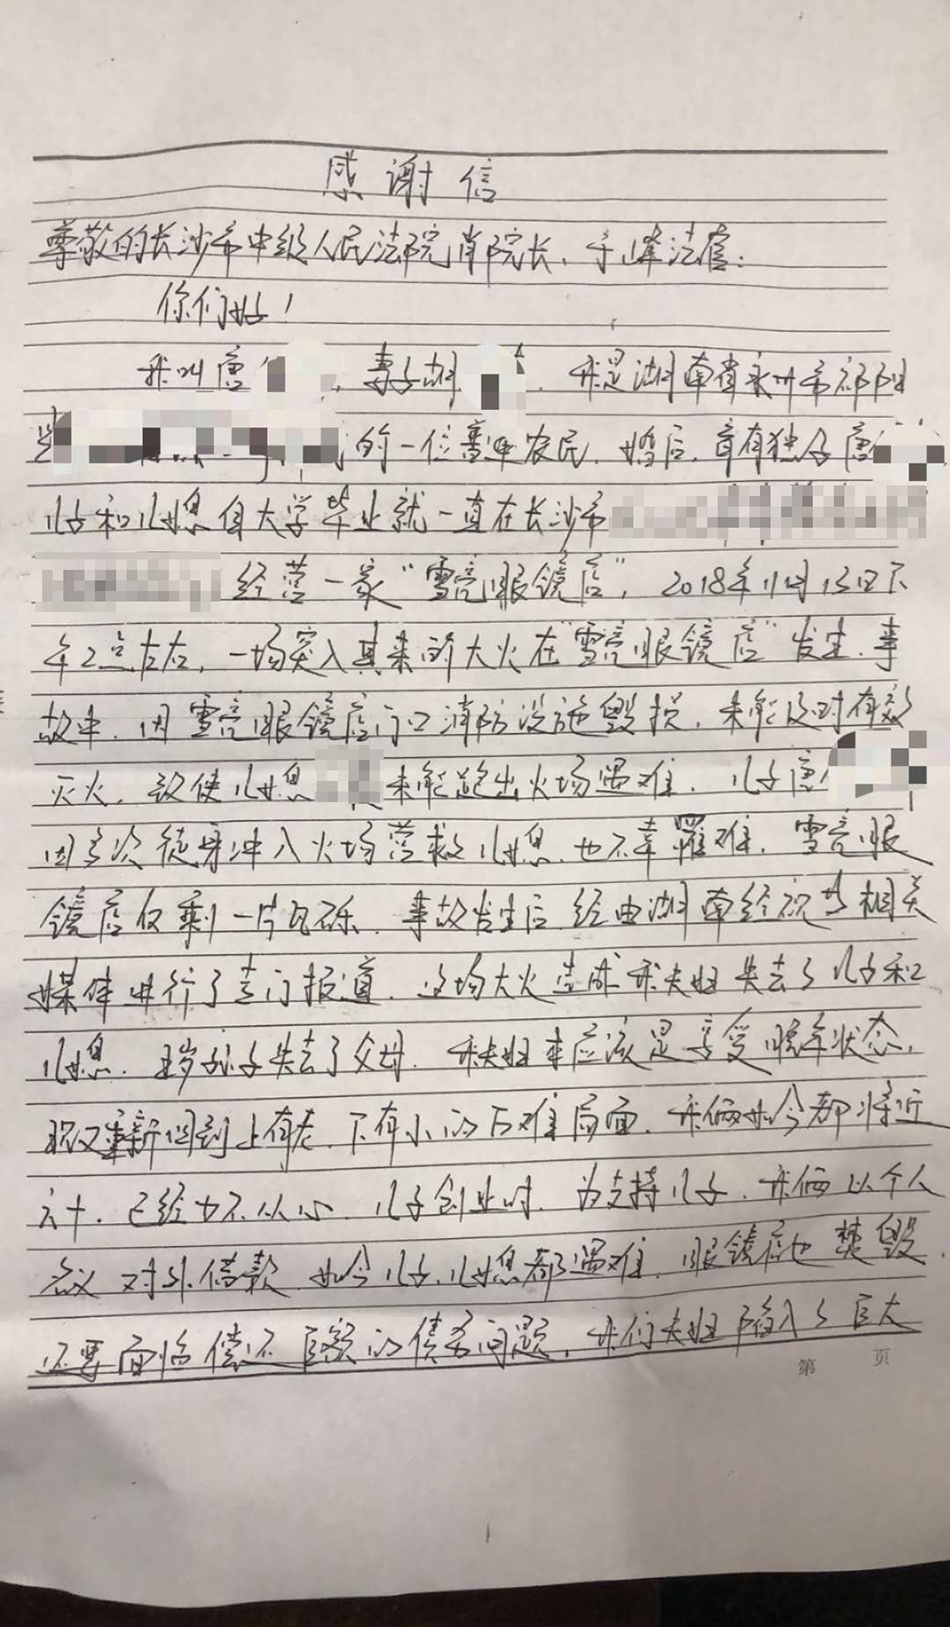 感谢信
尊敬的长沙市中级人民法院肖院长、于峰法官:
你们好!
我叫唐 , 妻子胡 . 我是湖南省永州市祁阳
的一位普通农民. 婚后, 育有独子唐
儿子和儿媳自大学毕业就一直在长沙市
经营一家“雪亮眼镜店”, 2018年11月15日下
午2点左右, 一场突入其来的大火在“雪亮眼镜店”发生. 事
故中, 因雪亮眼镜店门口消防设施毁损, 未能及时有效
灭火, 致使儿媳 未能跑出火场遇难. 儿子唐
因多次徒身冲入火场营救儿媳, 也不幸罹难. 雪亮眼
镜店仅剩一片瓦砾. 事故发生后, 经由湖南经视与相关
媒体进行了专门报道. 这场大火造成我夫妇失去了儿子和
儿媳. 孙子失去了父母. 我夫妇本应该是享受晚年状态,
现又重新回到上有老, 下有小的万难局面. 我俩如今都将近
六十, 已经力不从心. 儿子创业时, 为支持儿子, 我俩以个人
名义对外借款. 如今儿子、儿媳都遇难, 眼镜店也焚毁,
还要面临偿还巨额的债务问题, 我们夫妇陷入了巨大
第 页